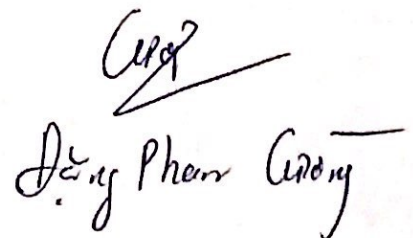 Đặng Phan Cường